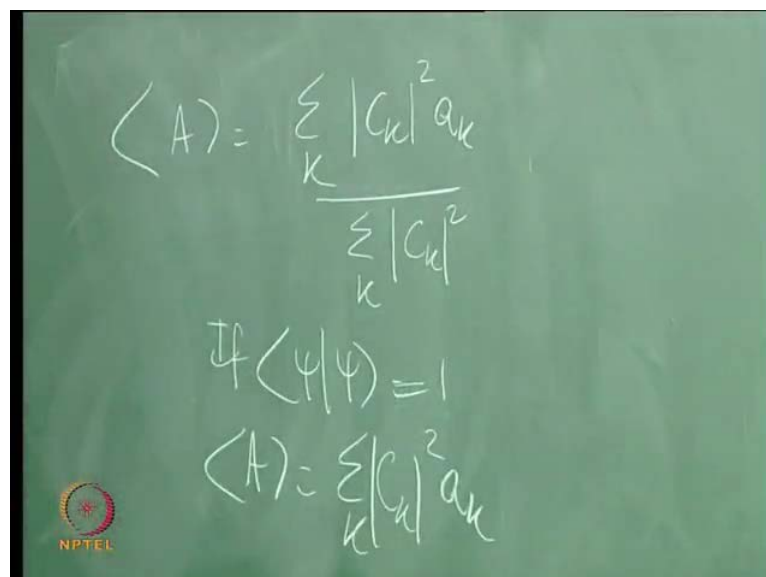 ⟨A⟩ = Σ_K |C_K|² a_K
Σ_K |C_K|²
If ⟨ψ|ψ⟩ = 1
⟨A⟩ = Σ_K |C_K|² a_K
NPTEL